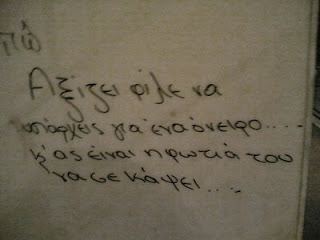 πῶ
Αξίζει φίλε να
υπάρχεις για ένα όνειρο....
κι ας είναι η φωτιά του
να σε κάψει....